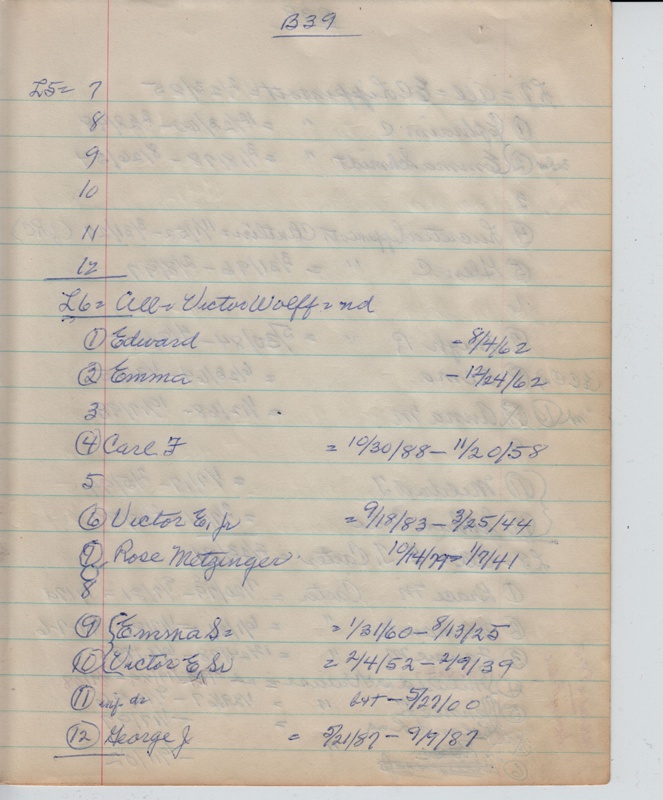 B39
L5= 7
8
9
10
11
12
L6= All= Victor Wolff= nd
① Edward - 8/4/62
② Emma - 12/24/62
3
④ Carl F = 10/30/88 - 11/20/58
5
⑥ Victor E, Jr = 9/18/83 - 3/25/44
⑦ Rose Metzinger 10/14/77= 1/7/41
8
⑨ {Emma S= = 1/31/60 - 8/13/25
⑩ {Victor E, Sr = 2/4/52 - 2/9/39
⑪ inf. dr - 5/27/00
⑫ George J = 5/21/87 - 9/9/87